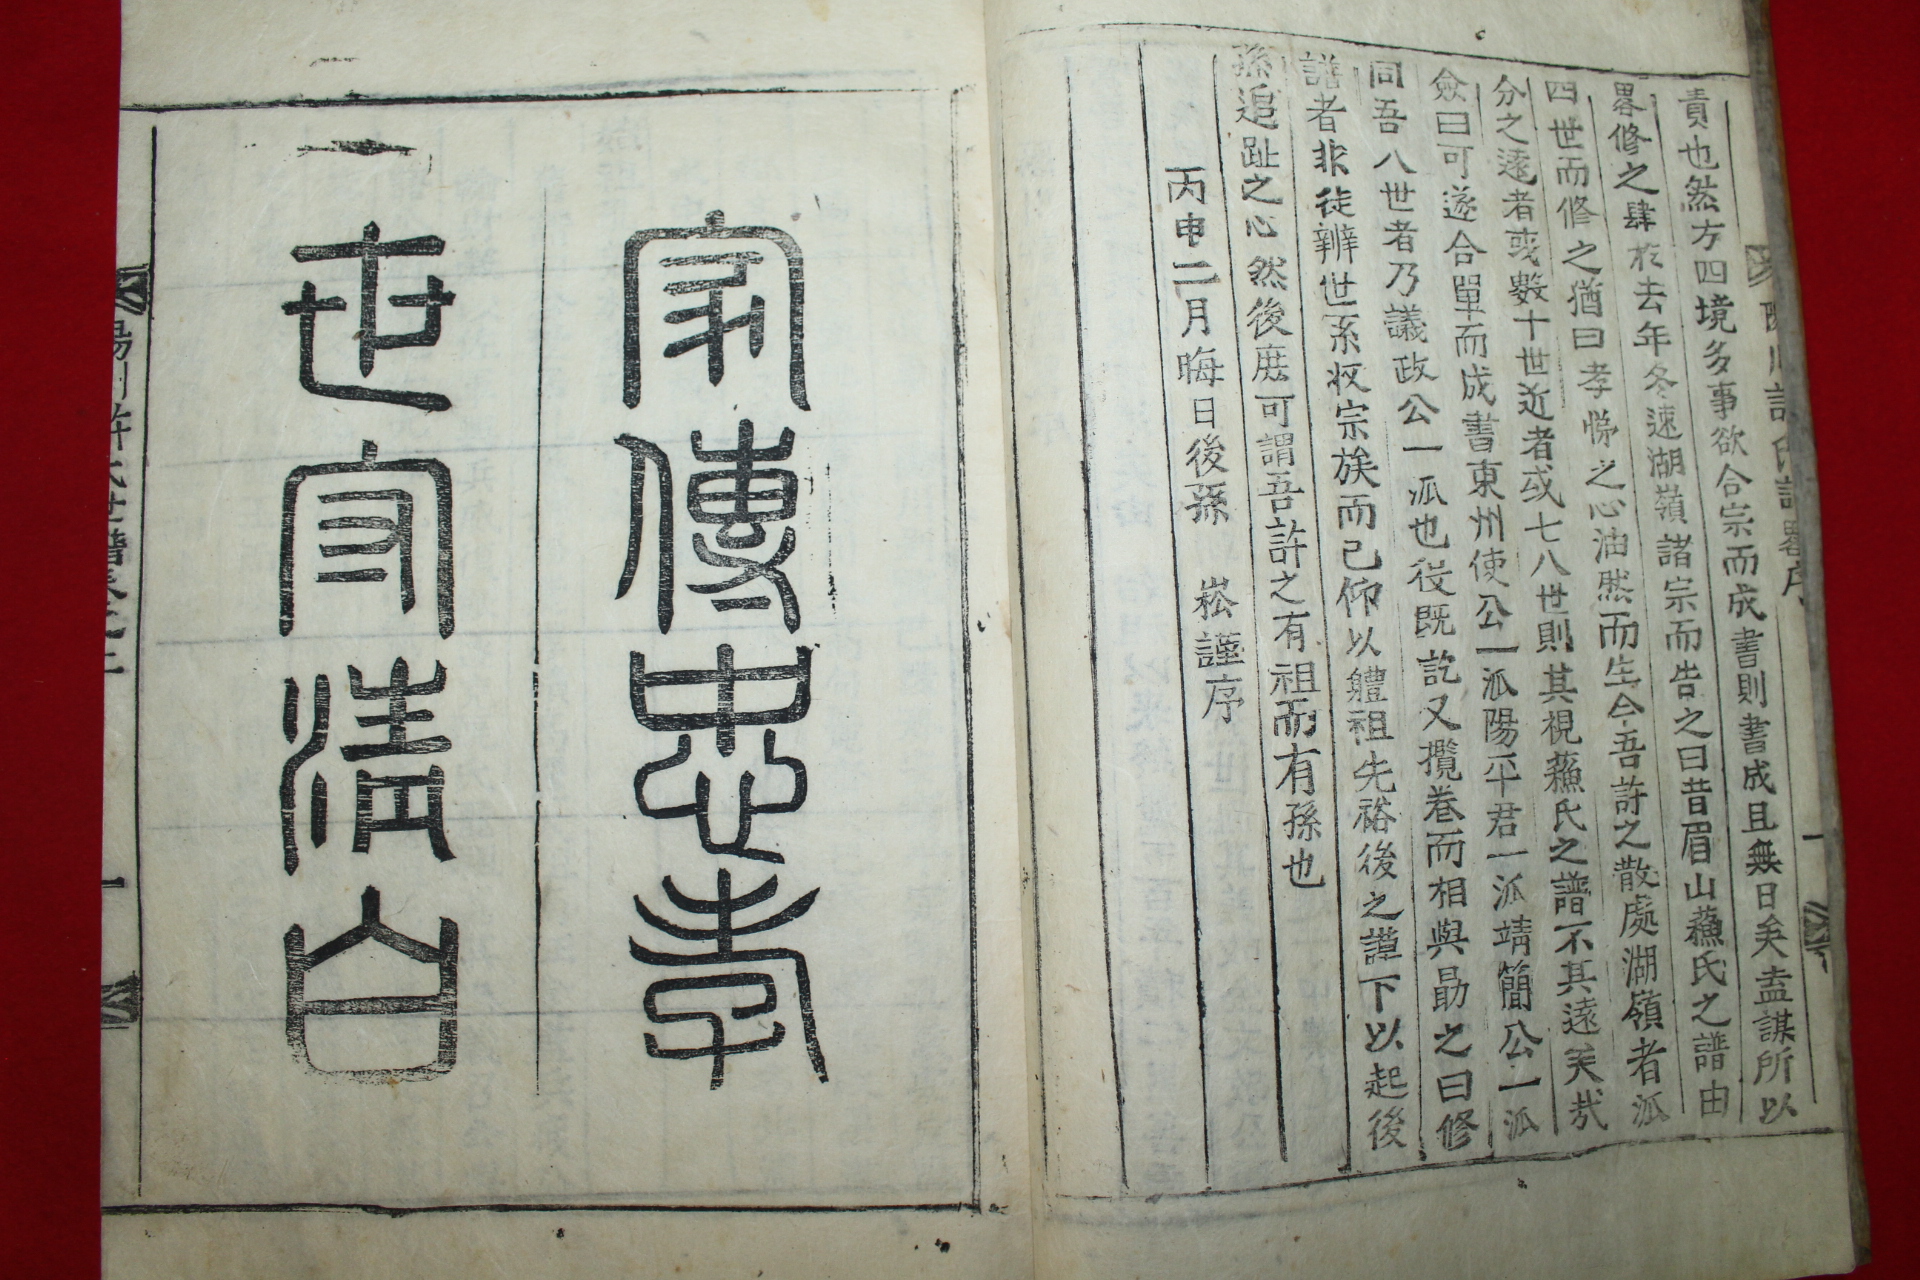 責也然方四境多事欲合宗而成書則書成且無日矣盍謀所以
畧修之肆於去年冬速湖嶺諸宗而告之曰昔眉山蘓氏之譜由
四世而修之猶曰孝悌之心油然而生今吾許之散處湖嶺者派
分之遠者或數十世近者或七八世則其視蘓氏之譜不其遠矣哉
僉曰可遂合單而成書東州使公一派陽平君一派靖簡公一派
同吾八世者乃議政公一派也役既訖又攬卷而相與勗之曰修
譜者非徒辨世系收宗族而已仰以軆祖先裕後之謨下以起後
孫追趾之心然後庶可謂吾許之有祖而有孫也
丙申二月晦日後孫 崧謹序
家傳忠孝
世守清白